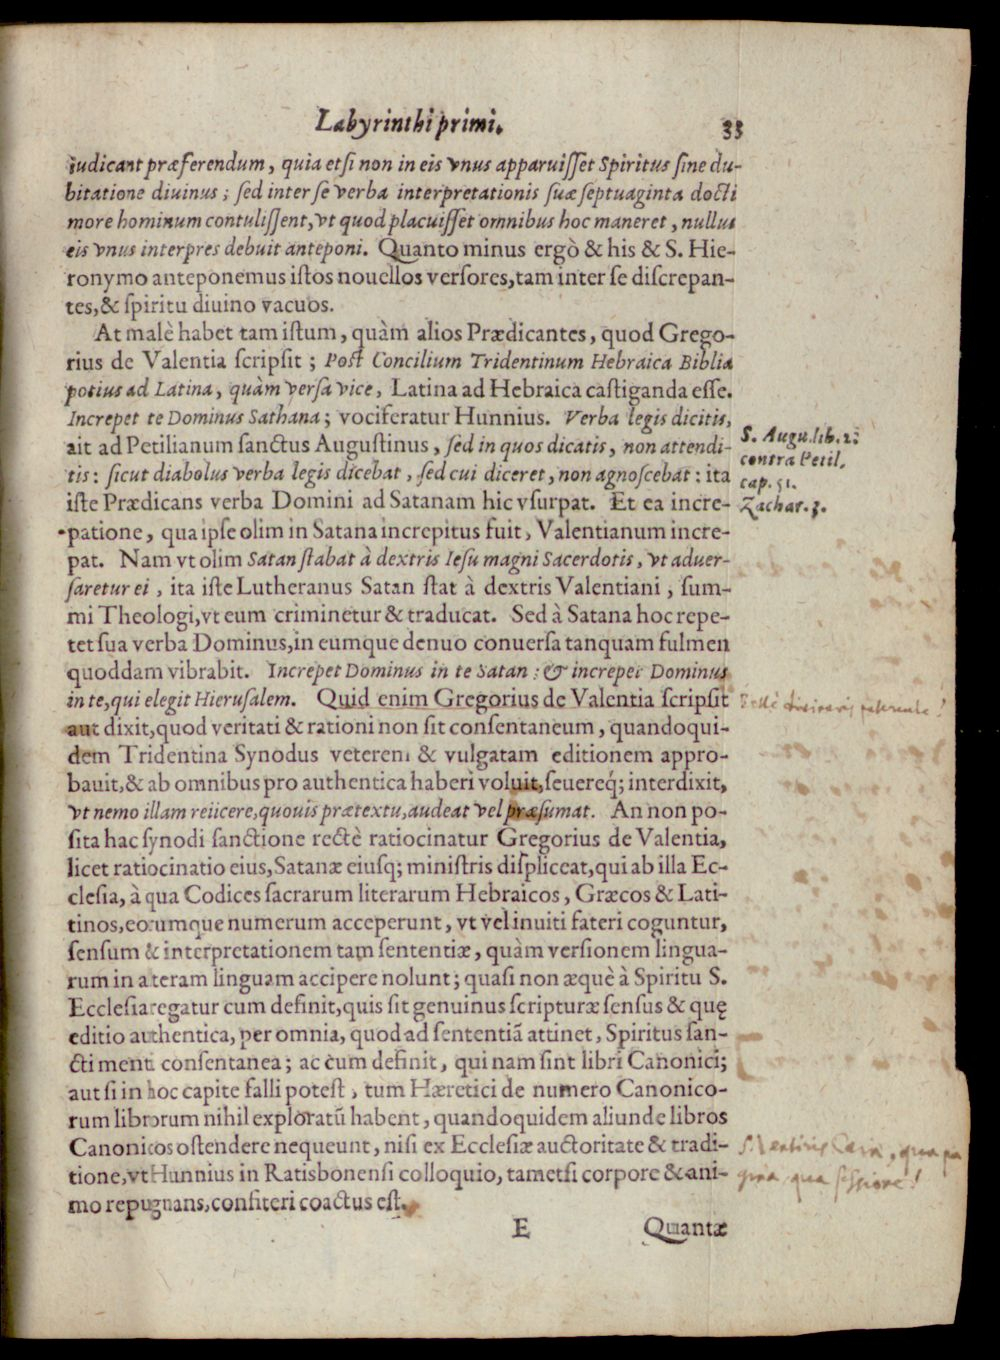 Labyrinthi primi. 33
iudicant præferendum, quia etsi non in eis vnus apparuisset Spiritus sine du-
bitatione diuinus; sed inter se verba interpretationis suæ septuaginta docti
more hominum contulissent, vt quod placuisset omnibus hoc maneret, nullus
eis vnus interpres debuit anteponi. Quanto minus ergò & his & S. Hie-
ronymo anteponemus istos nouellos versores, tam inter se discrepan-
tes, & spiritu diuino vacuos.
At malè habet tam istum, quàm alios Prædicantes, quod Grego-
rius de Valentia scripsit; Post Concilium Tridentinum Hebraica Biblia
potius ad Latina, quàm versa vice, Latina ad Hebraica castiganda esse.
Increpet te Dominus Sathana; vociferatur Hunnius. Verba legis dicitis,
ait ad Petilianum sanctus Augustinus, sed in quos dicatis, non attendi-
tis: sicut diabolus verba legis dicebat, sed cui diceret, non agnoscebat: ita
iste Prædicans verba Domini ad Satanam hic vsurpat. Et ea incre-
patione, qua ipse olim in Satana increpitus fuit, Valentianum incre-
pat. Nam vt olim Satan stabat à dextris Iesu magni Sacerdotis, vt aduer-
saretur ei, ita iste Lutheranus Satan stat à dextris Valentiani, sum-
mi Theologi, vt eum criminetur & traducat. Sed à Satana hoc repe-
tet sua verba Dominus, in eumque denuo conuersa tanquam fulmen
quoddam vibrabit. Increpet Dominus in te Satan: & increpet Dominus
in te, qui elegit Hierusalem. Quid enim Gregorius de Valentia scripsit
aut dixit, quod veritati & rationi non sit consentaneum, quandoqui-
dem Tridentina Synodus veterem & vulgatam editionem appro-
bauit, & ab omnibus pro authentica haberi voluit, seuereq́; interdixit,
vt nemo illam reiicere, quouis prætextu, audeat vel præsumat. An non po-
sita hac synodi sanctione rectè ratiocinatur Gregorius de Valentia,
licet ratiocinatio eius, Satanæ eiusq; ministris displiceat, qui ab illa Ec-
clesia, à qua Codices sacrarum literarum Hebraicos, Græcos & Lati-
tinos, eorumque numerum acceperunt, vt vel inuiti fateri coguntur,
sensum & interpretationem tam sententiæ, quàm versionem lingua-
rum in alteram linguam accipere nolunt; quasi non æquè à Spiritu S.
Ecclesia regatur cum definit, quis sit genuinus scripturæ sensus & quę
editio authentica, per omnia, quod ad sententiā attinet, Spiritus san-
cti menti consentanea; ac cùm definit, qui nam sint libri Canonici;
aut si in hoc capite falli potest, tum Hæretici de numero Canonico-
rum librorum nihil exploratū habent, quandoquidem aliunde libros
Canonicos ostendere nequeunt, nisi ex Ecclesiæ auctoritate & tradi-
tione, vt Hunnius in Ratisbonensi colloquio, tametsi corpore & ani-
mo repugnans, confiteri coactus est.
E Quantæ
S. Augu. lib. 2.
contra Petil.
cap. 51.
Zachar. 3.